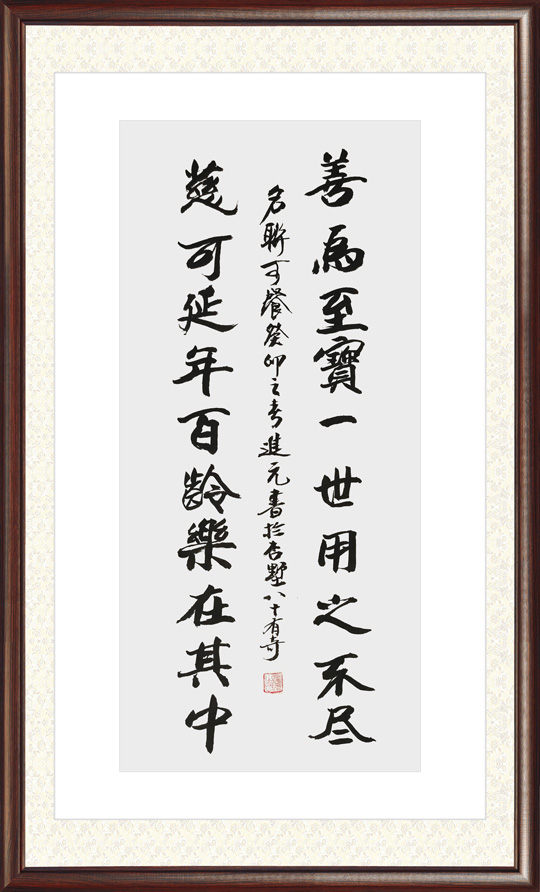 善為至寶一世用之不尽
名聯可餐癸卯之春進元書於杏墅八十有奇
慈可延年百齡樂在其中